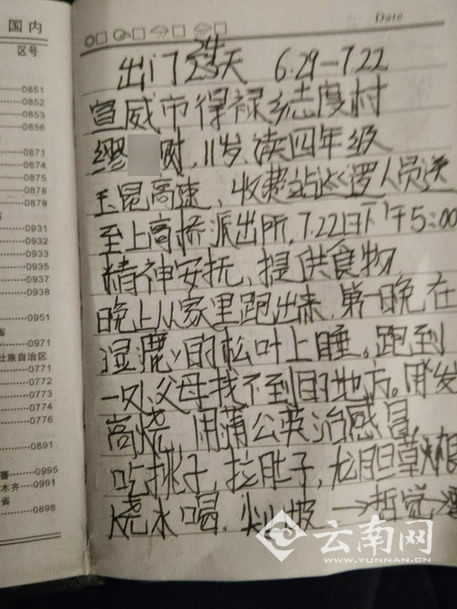 国内
区号
0851
0852
0853
0856
0871
0874
0875
0878
0879
0931
0932
0933
0935
0937
0938
0951
壮族自治区
0771
0772
0773
0774
0776
0891
0995
木齐 0991
0898
Date
出门24天 6.29-7.22
宣威市得禄乡志度村
缪 财,11岁,读四年级
玉昆高速,收费站巡逻人员送
至上高桥派出所,7.22日下午5:00
精神安抚,提供食物,
晚上从家里跑出来,第一晚在
湿鹿鹿的松叶上睡。跑到
一处父母找不到的地方。用发
高烧 用蒲公英治感冒
吃桃子,拉肚子,龙胆草
烧水喝.
云南网
WWW.YUNNAN.CN